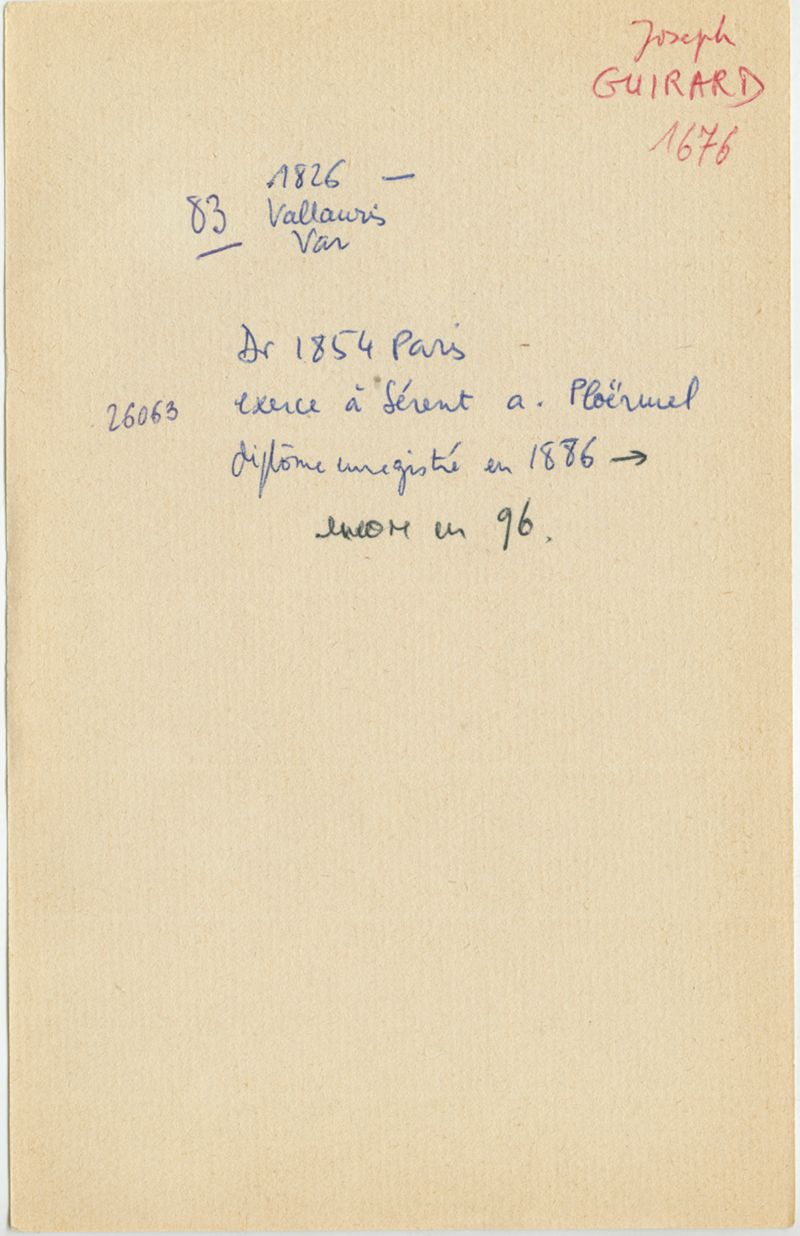 Joseph
GUIRARD
1676
1826 —
83 Vallauris
Var
Dr 1854 Paris
26063 exerce à Sérent a. Ploërmel
diplôme enregistré en 1886 →
encore en 96.